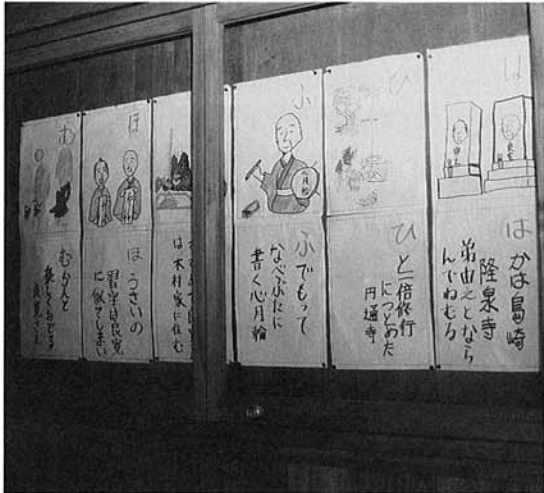 は
良寛
由之
はかは島崎
隆泉寺
弟由之となら
んでねむる
ひ
ひと一倍修行
につとめた
円通寺
ふ
心月輪
ふでもって
なべぶたに
書く心月輪
は木村家に住む
ほ
ほうさいの
習字は良寛
に似てしまい
良寛さん